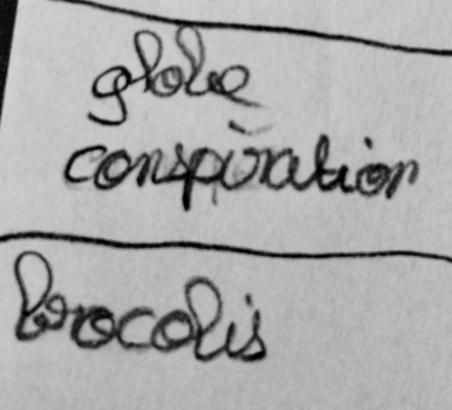 globe
conspiration
brocolis